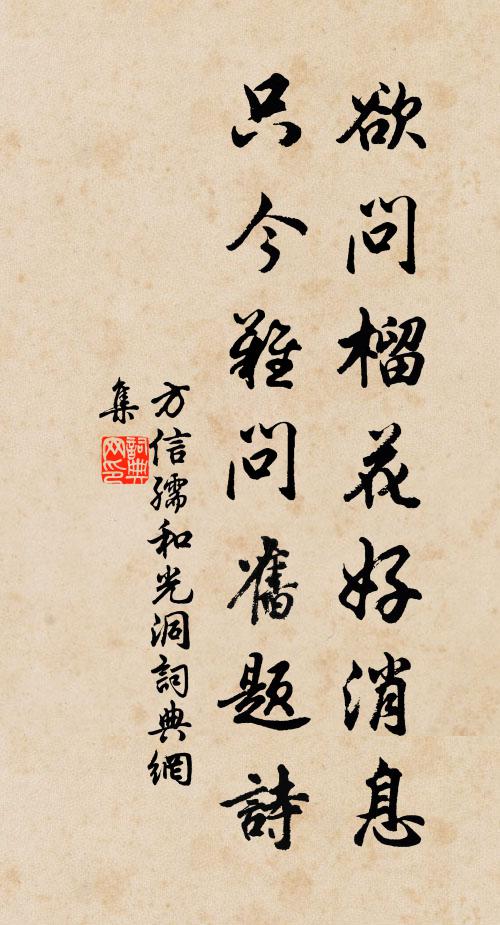 欲問榴花好消息
只今難問舊題詩
方信孺和光洞詞典網
集
詞典
网印